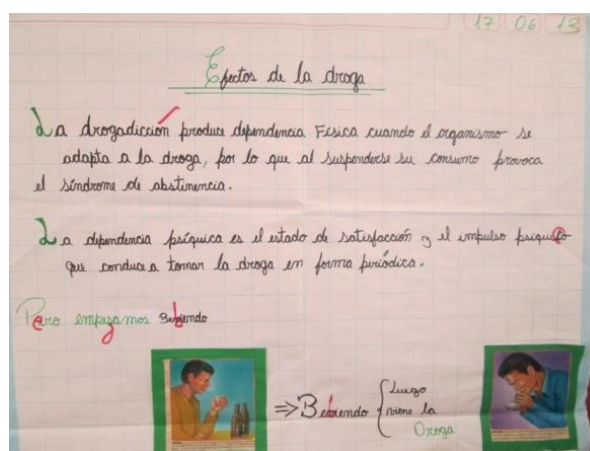 17 06 13
Efectos de la droga
La drogadicción produce dependencia Física cuando el organismo se
adapta a la droga, por lo que al suspenderse su consumo provoca
el síndrome de abstinencia.
La dependencia psíquica es el estado de satisfacción y el impulso psiquico
que conduce a tomar la droga en forma periódica.
Pero empezamos Bebiendo
⇒ Bebiendo { Luego
viene la
Droga